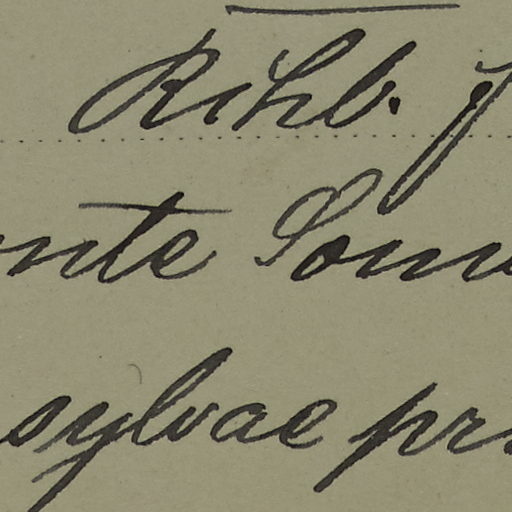 Rchb. f
nte Somm
sylvae pr